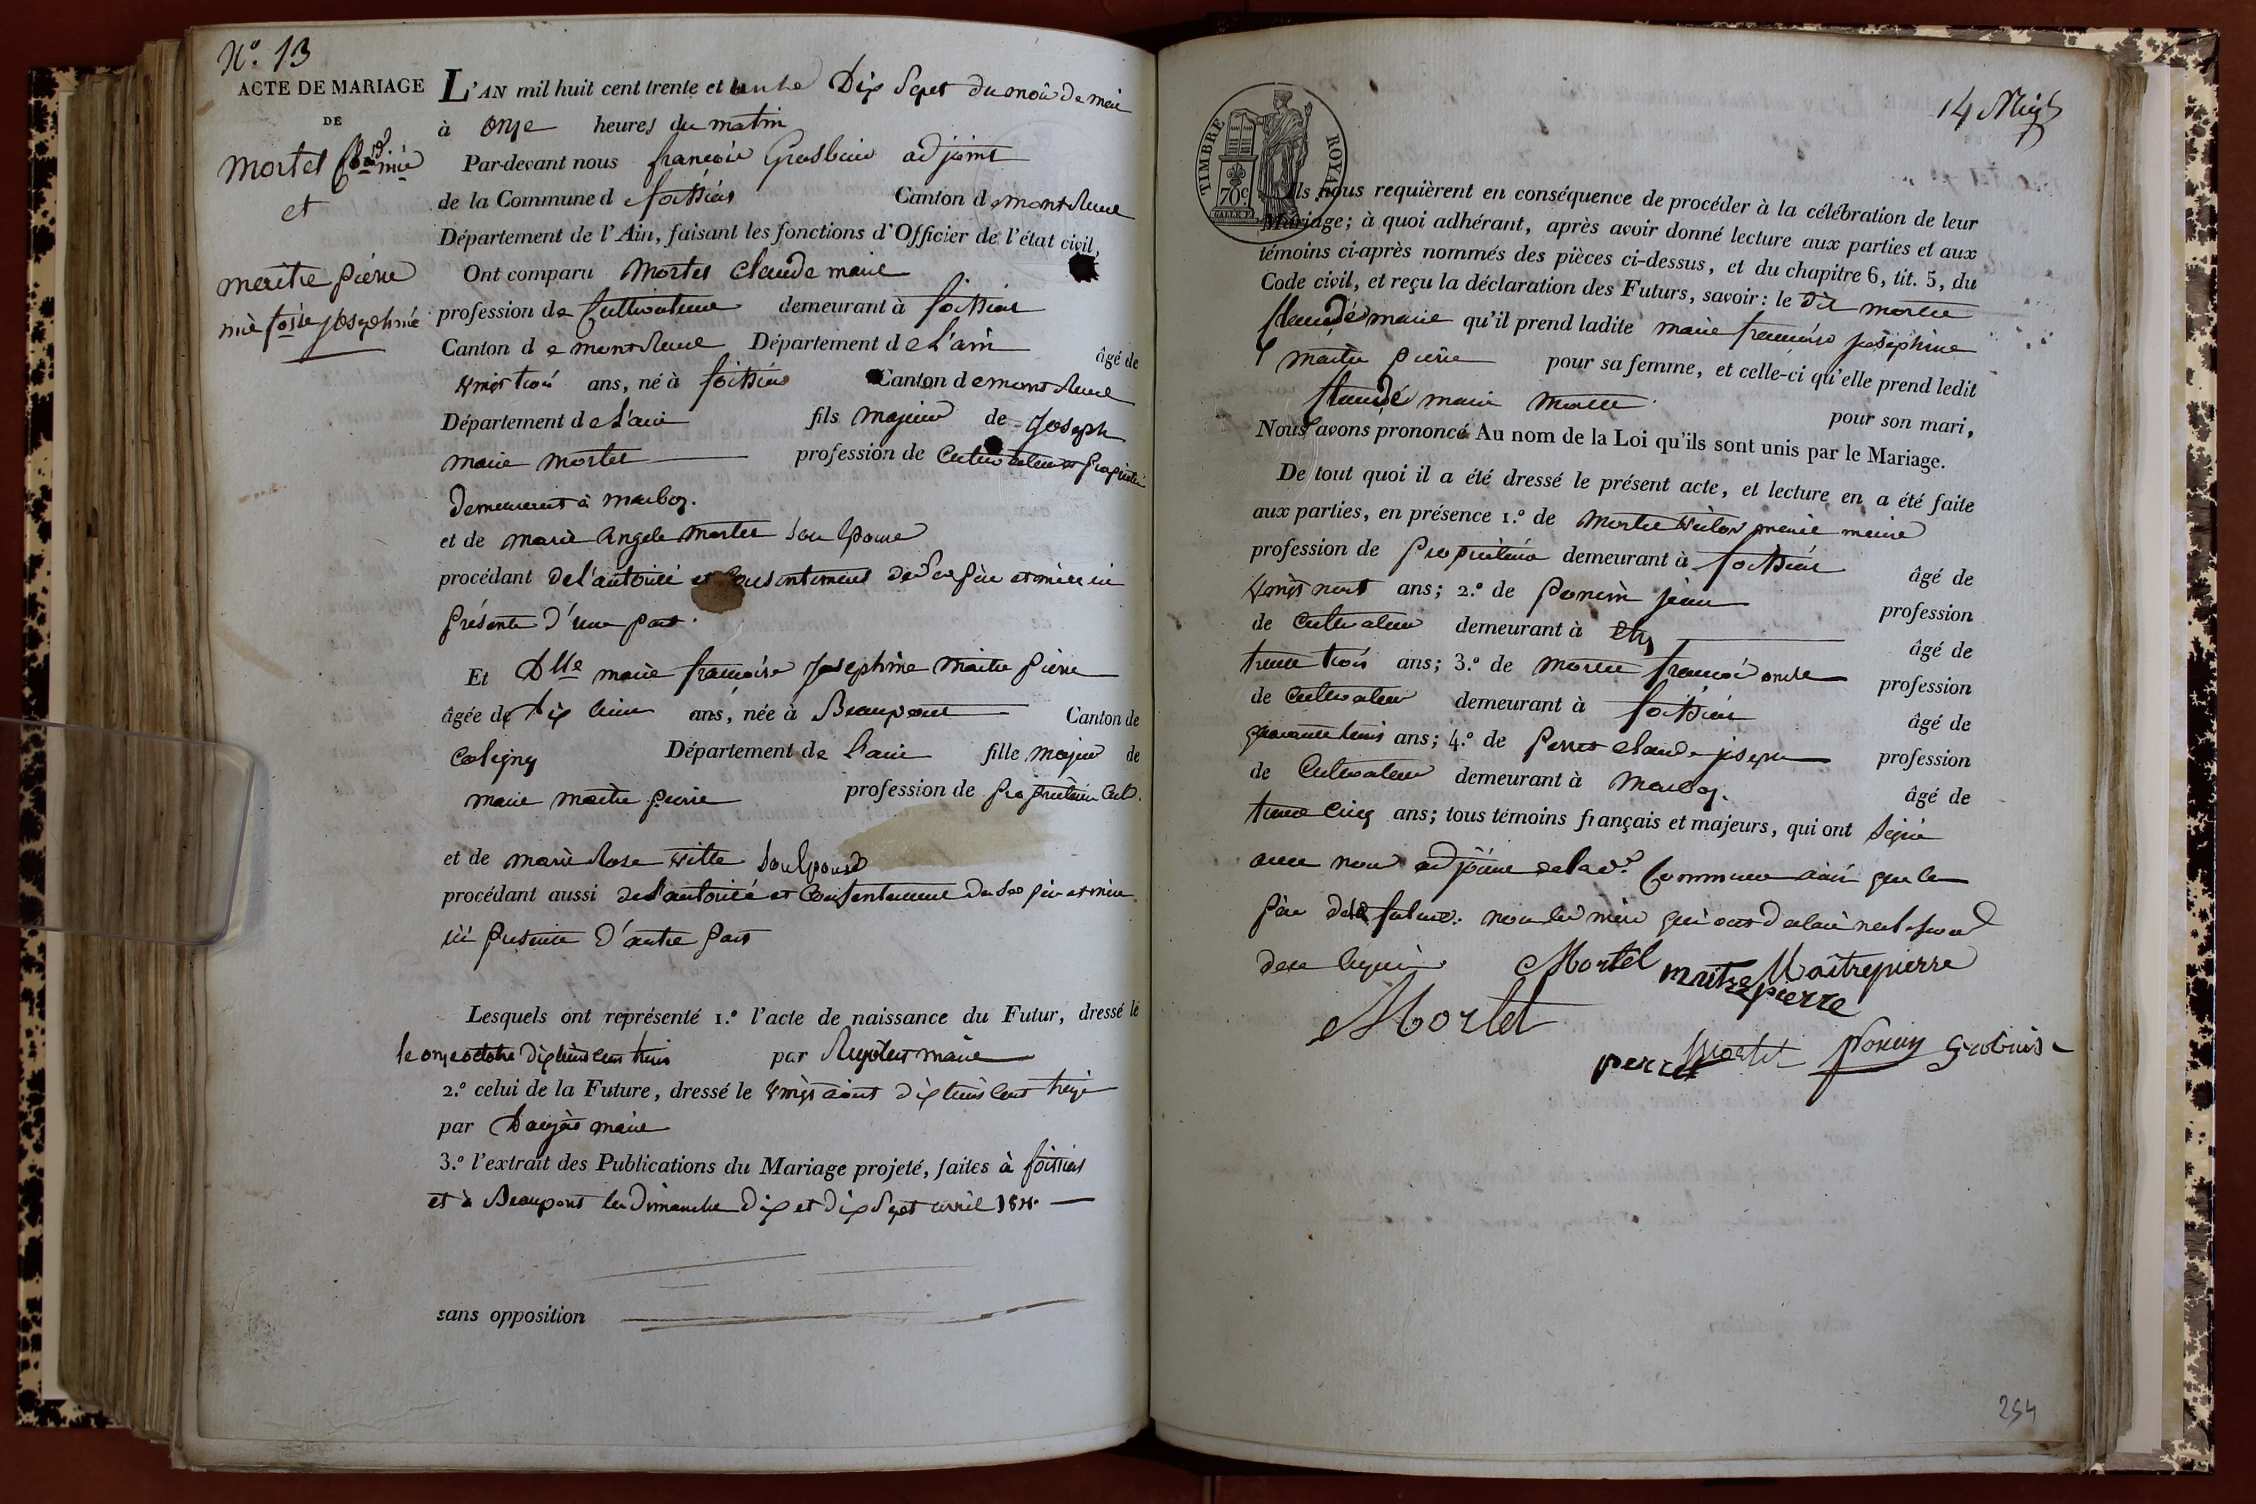 N.º 13
ACTE DE MARIAGE
DE
Mortel Cl.de m.ie
et
maitre pierre
m.ie f.oise josephine
L'AN mil huit cent trente et Dix Sept du mois de mai
à onze heures du matin
Par-devant nous françois Grosbuis adjoint
de la Commune d foissiat Canton de montrevel
Département de l'Ain, faisant les fonctions d'Officier de l'état civil,
Ont comparu Mortel claude marie
profession de Cultivateur demeurant à foissiat
Canton de montrevel Département de L'ain âgé de
vingt trois ans, né à foissiat Canton de montrevel
Département de L'ain fils majeur de Joseph
marie mortel profession de Cultivateur et propriétaire
demeurant à marboz.
et de marie angele mortel son epouse
procédant de l'autorité et Consentement de Ses père et mère ici
présents d'une part.
Et Dlle marie françoise Josephine Maitre pierre
âgée de dix huit ans, née à Beaupont Canton de
Coligny Département de L'ain fille majeur de
marie maitre pierre profession de propriétaire Cult.
et de marie Rose vitte Son Epouse
procédant aussi de l'autorité et Consentement de Ses père et mère
ici présents D'autre part
Lesquels ont représenté 1.º l'acte de naissance du Futur, dressé le
le onze octobre dix huit cent huit par maire
2.º celui de la Future, dressé le vingt août dix huit cent treize
par Daujat maire
3.º l'extrait des Publications du Mariage projeté, faites à foissiat
et à Beaupont les Dimanche dix et dix Sept avril
sans opposition
14
TIMBRE ROYAL
70c
Ils nous requièrent en conséquence de procéder à la célébration de leur
Mariage; à quoi adhérant, après avoir donné lecture aux parties et aux
témoins ci-après nommés des pièces ci-dessus, et du chapitre 6, tit. 5, du
Code civil, et reçu la déclaration des Futurs, savoir: le dit mortel
Claude marie qu'il prend ladite marie françoise josephine
maitre pierre pour sa femme, et celle-ci qu'elle prend ledit
Claude marie Mortel pour son mari,
Nous avons prononcé Au nom de la Loi qu'ils sont unis par le Mariage.
De tout quoi il a été dressé le présent acte, et lecture en a été faite
aux parties, en présence 1.º de Mortel marie
profession de Propriétaire demeurant à foissiat âgé de
vingt neuf ans; 2.º de Poncin jean profession
de Cultivateur demeurant à âgé de
trente trois ans; 3.º de Mortel françois oncle profession
de Cultivateur demeurant à foissiat âgé de
quarante ans; 4.º de Perret claude joseph profession
de Cultivateur demeurant à Marboz. âgé de
trente cinq ans; tous témoins français et majeurs, qui ont Signé
avec nous adjoint de la d.e Commune ainsi que le
père de la future. non les mère qui ont déclaré ne le savoir
de ce requis.
Mortel maitrepierre Maitrepierre
Mortel
perret Mortel Poncin Grosbuis
254